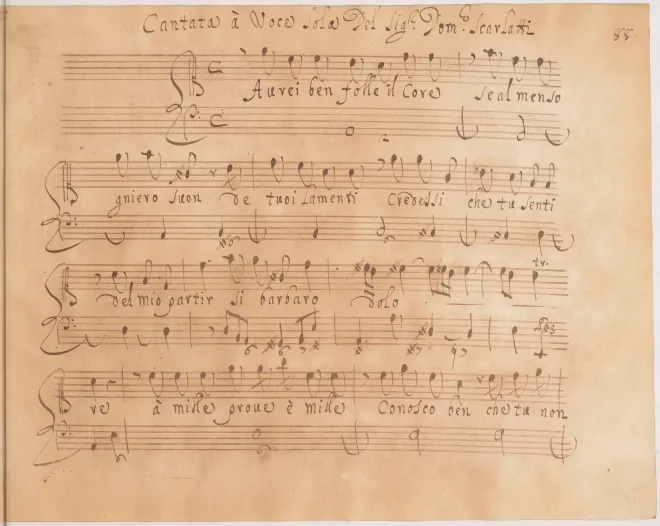 Cantata à Voce Sola Del Sigr. Domco. Scarlatti
88.
Aurei ben folle il Core se al menso
gniero suon de tuoi lamenti Credessi che tu senti
del mio partir si barbaro dolo
tr.
re à mille proue è mille Conosco ben che tu non